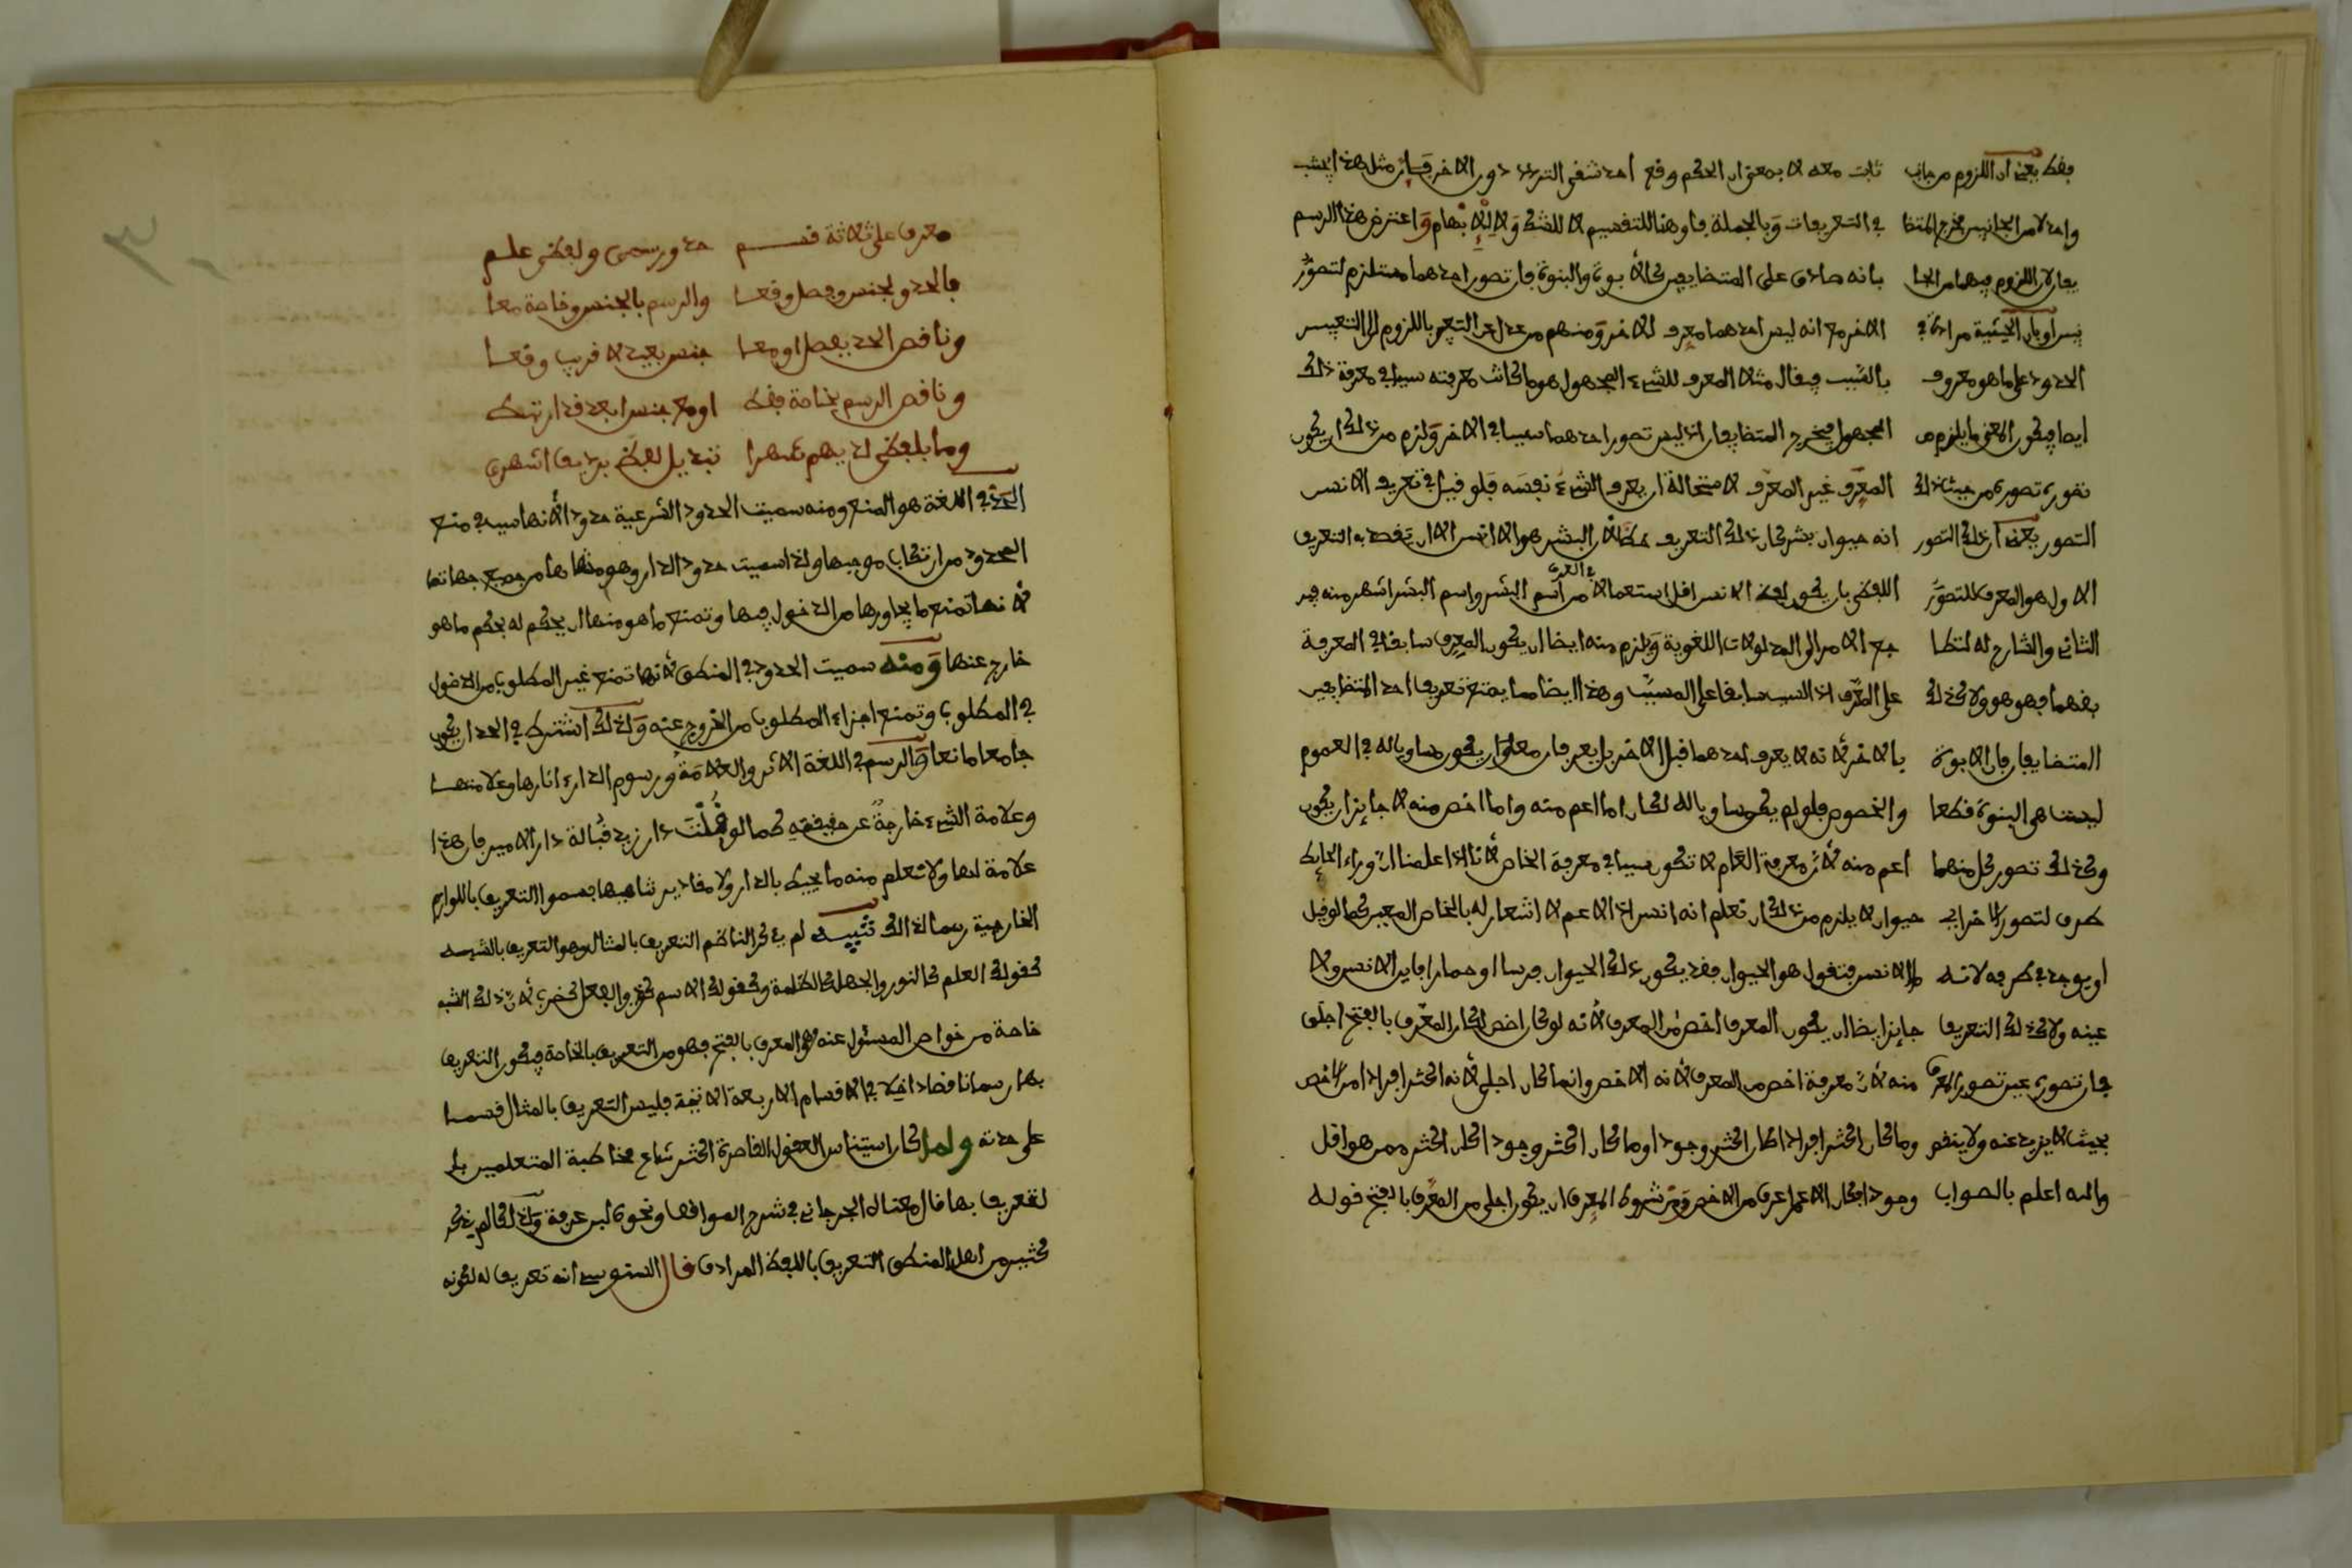 ثابت معه لا بمعنى ان الحكم وقع احد شقي الترديد دون الاخر فإن مثل هذا يجتنب
في التعريفات وبالجملة فأو هنا للتقسيم لا للشك ولا للإبهام واعترض هذا الرسم
بانه صادق على المتضايفين كالأبوة والبنوة فان تصور احدهما مستلزم لتصور
الاخر مع انه ليس احدهما معرف للاخر ومنهم من عدل عن التعبير باللزوم الى التعبير
بالسبب فيقال مثلا المعرف للشيء المجهول هو ما كانت معرفته سببا في معرفة ذلك
المجهول فيخرج المتضايفان اذ ليس تصور احدهما سببا في الاخر ولزم من ذلك ان يكون
المعرف غير المعرف لاستحالة ان يعرف الشيء نفسه فلو قيل في تعريف الانسن
انه حيوان بشر كان ذلك التعريف خطأ لأن البشر هو الانسن الا ان يقصد به التعريف
اللفظي بان يكون لفظ الانسن اقل استعمالا في العرف من اسم البشر واسم البشر اشهر منه فير
جع الامر الى المدلولات اللغوية ويلزم منه ايضا ان يكون المعرف سابقا في المعرفة
على المعرف اذ السبب سابق على المسبب وهذا ايضا مما يمنع تعريف احد المتضايفين
بالاخر لأنه لا يعرف احدهما قبل الاخر بل يعرفان معا وان يكون مساويا له في العموم
والخصوص فلو لم يكن مساويا له لكان اما اعم منه واما اخص منه لا جايز ان يكون
اعم منه لأن معرفة العام لا تكون سببا في معرفة الخاص لأنا اذا علمنا ان وراء الحايط
حيوان لا يلزم من ذلك ان نعلم انه انسن اذ الاعم لا اشعار له بالخاص المعين كما لو قيل
ما الانسن فتقول هو الحيوان فقد يكون ذلك الحيوان فرسا او حمارا فاين الانسن ولا
جايزا ايضا ان يكون المعرف اخص من المعرف لأنه لو كان اخص لكان المعرف بالفتح اجلى
منه لأن معرفة اخص من المعرف لأنه الاخص وانما كان اجلى لأنه اكثر افرادا من الاخص
وما كان اكثر افرادا كان اكثر وجودا وما كان اكثر وجودا كان اكثر ممن هو اقل
وجودا فكان الاعم اعرف من الاخص ومن شروط المعرف ان يكون اجلى من المعرف بالفتح قوله
فقط يعني ان اللزوم من جانب
واحد لا من الجانبين مخرج للمتضا
يفان لان اللزوم فيهما من الجا
نبين او بان الحيثية مرادة في
الحدود على ما هو معروف
ايضا فيكون المعنى ما يلزم من
تصوره من حيث ذلك
التصور يعني ان ذلك التصور
الاول هو المعرف للتصور
الثاني والشارح له
بفهما فهو هو ولا كذلك
المتضايفان فان الابوة
ليست هي البنوة قطعا
وكذلك تصور كل منهما
طرف لتصور الاخر اي
او يوجد في طرف لا انه
عينه ولا كذلك التعريف
فان تصوره عين تصور المعرف
بحيث لا يزيد عنه ولا ينقص
والله اعلم بالصواب
معرف على ثلاثة قسم حد ورسمي ولفظي علم
فالحد بجنس وفصل وقعا والرسم بالجنس وخاصة معا
وناقص الحد بفصل او معا جنس بعيد لا قريب وقعا
وناقص الرسم بخاصة فقط او مع جنس ابعد قد ارتبط
وما بلفظي لديهم شهرا تبديل لفظ برديف اشهرا
الحد في اللغة هو المنع ومنه سميت الحدود الشرعية حدودا لأنها سبب في منع
المحدود من ارتكاب موجبها ولذا سميت حدود الدار وهو منتهاها من جميع جهاتها
لأنها تمنع ما يجاورها من الدخول فيها وتمنع ما هو منها ان يحكم له بحكم ما هو
خارج عنها ومنه سميت الحدود في المنطق لأنها تمنع غير المطلوب من الدخول
في المطلوب وتمنع اجزاء المطلوب من الخروج عنه ولذلك اشترط في الحد ان يكون
جامعا مانعا والرسم في اللغة الاثر والعلامة ورسوم الدار اثارها وعلامتها
وعلامة الشيء خارجة عن حقيقته كما لو قلت دار زيد قبالة دار الامير فان هذا
علامة لها ولا تعلم منه ما يحيط بالدار ولا مقادير فسموا التعريف باللوازم
الخارجية رسما لذلك تنبيه لم يذكر الناظم التعريف بالمثال وهو التعريف بالشبه
كقولك العلم كالنور والجهل كالظلمة وكقولك الاسم كزيد والفعل كضرب لأن ذلك الشبه
خاصة من خواص المسئول عنه المعرف بالفتح فهو من التعريف بالخاصة فيكون التعريف
بها رسما ناقصا داخلا في الاقسام الاربعة الاتية فليس التعريف بالمثال قسما
على حدته ولما كان استيناس العقول القاصرة اكثر شاع مخاطبة المتعلمين بل
لتعريف بها قال معناه الجرجاني في شرح المواقف ونحوه لبن عرفة وكذلك لم يذكر
كثير من اهل المنطق التعريف باللفظ المرادف قال السنوسي انه تعريف له لكونه